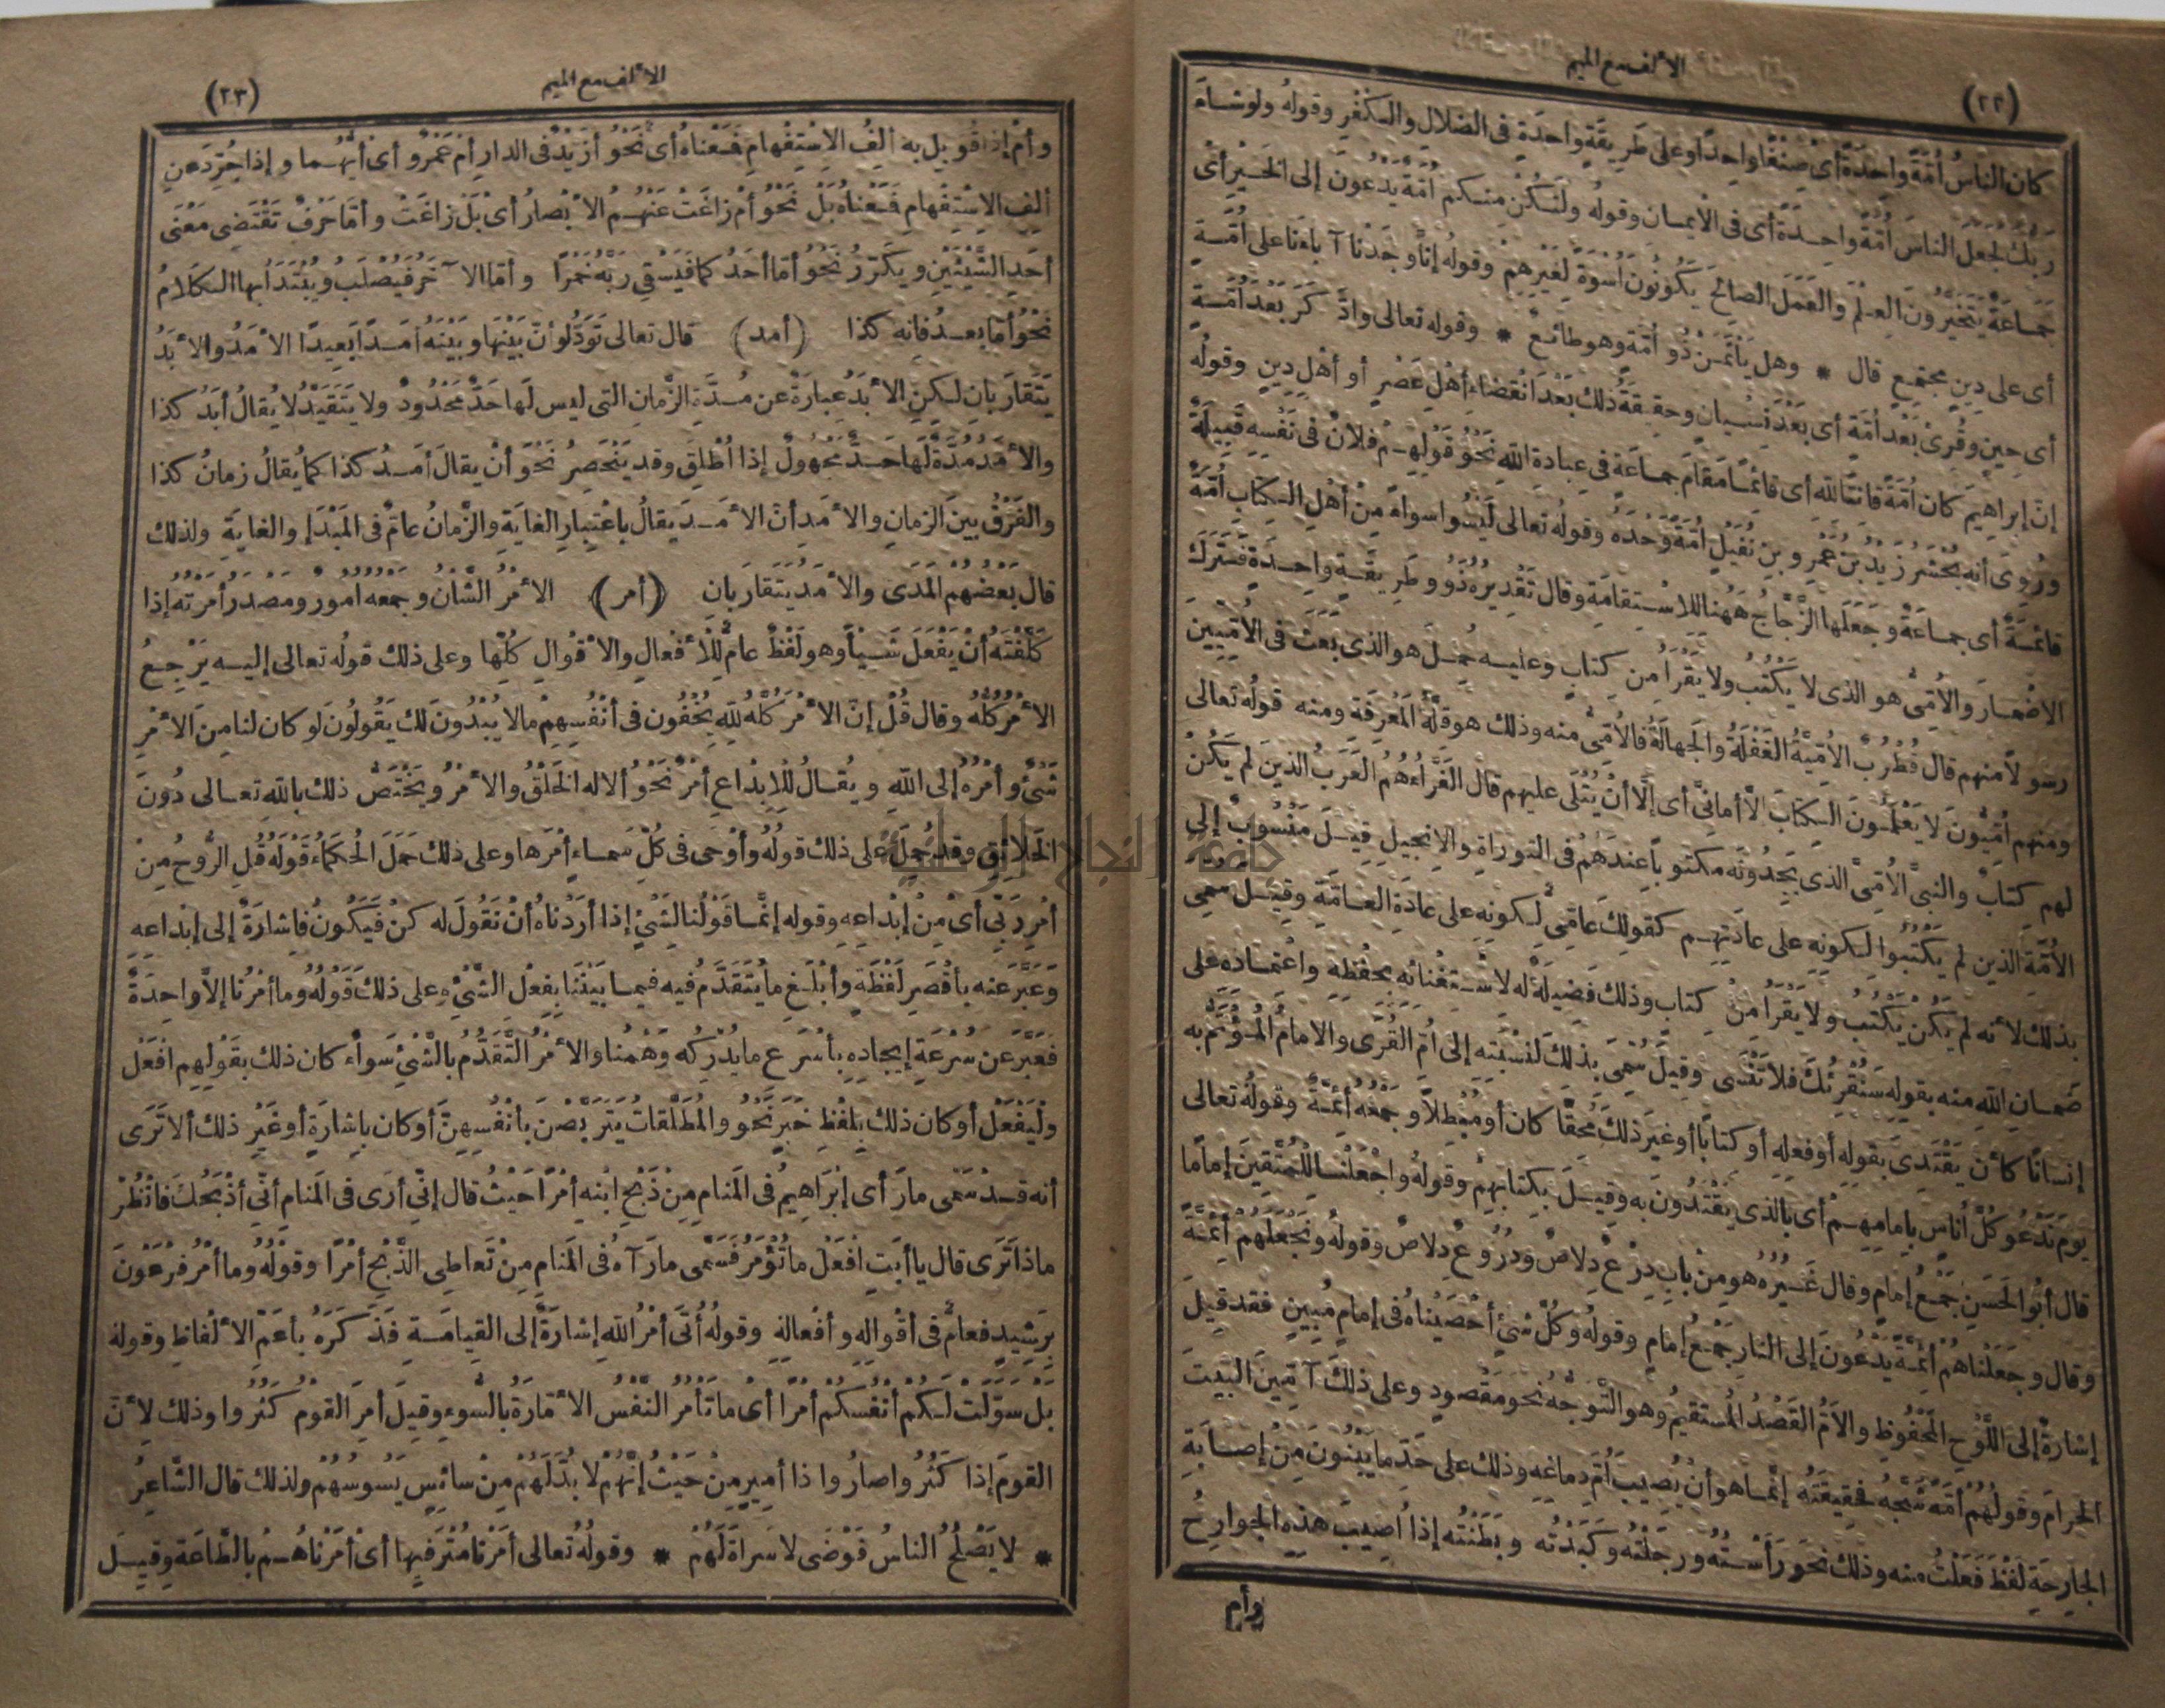 (٢٢)
الألف مع الميم
كان الناسُ أُمَّةً واحِدَةً أى صِنْفًا واحِدًا وعلى طَرِيقَةٍ واحِدَةٍ فى الضلالِ والكُفْرِ وقولُه ولو شاءَ
رَبُّكَ لَجَعَلَ الناسَ أُمَّةً واحِدَةً أى فى الإيمان وقولُه ولْتَكُنْ منكم أُمَّةٌ يَدْعُونَ إلى الخَيْرِ أى
جَمَاعَةٌ يَتَخَيَّرُونَ العِلْمَ والعَمَلَ الصالِحَ يَكُونُونَ أُسْوَةً لِغَيْرِهِمْ وقولُه إنَّا وجَدْنا آباءَنا على أُمَّةٍ
أى على دِينٍ مجتمعٍ قال * وهل يَأْثَمَنْ ذُو أُمَّةٍ وهو طائعُ * وقوله تعالى وادَّكَرَ بَعْدَ أُمَّةٍ
أى حِينٍ وقُرِئَ بَعْدَ أَمَهٍ أى بَعْدَ نِسْيانٍ وحقيقةُ ذلك بَعْدَ انقضاءِ أهْلِ عَصْرٍ أو أهْلِ دِينٍ وقولُه
إنَّ إبراهيمَ كان أُمَّةً قانتًا لله أى قائمًا مَقامَ جماعَةٍ فى عِبادةِ اللهِ نَحْوُ قَوْلِهِم فلانٌ فى نَفْسِه قَبِيلَةٌ
ورُوِىَ أنه يُحْشَرُ زَيْدُ بنُ عَمْرِو بنِ نُفَيْلٍ أُمَّةً وَحْدَهُ وقولُه تعالى لَيْسُوا سواءً مِنْ أهْلِ الكتابِ أُمَّةٌ
قائمةٌ أى جماعةٌ وجَعَلَها الزَّجَّاجُ هَهُنا للاسْتِقامَةِ وقال تَقْدِيرُه ذُو طَرِيقَةٍ واحِدَةٍ فَتَرْكُ
الإضْمارِ والأُمِّىُّ هو الذى لا يَكْتُبُ ولا يَقْرَأُ من كتابٍ وعليه حُمِلَ هو الذى بَعَثَ فى الأُمِّيِّينَ
رسولاً منهم قال قُطْرُبٌ الأُمِّيَّةُ الغَفْلَةُ والجَهالَةُ فالأُمِّىُّ منه وذلك هو قِلَّةُ المَعْرِفَةِ ومنه قولُه تعالى
ومنهم أُمِّيُّونَ لا يَعْلَمُونَ الكتابَ إلاَّ أمانِىَّ أى إلاَّ أنْ يُتْلَى عليهم قال الفَرَّاءُ هُمُ العَرَبُ الذينَ لم يَكُنْ
لهم كتابٌ والنبىَّ الأُمِّىَّ الذى يَجِدُونَه مكتوباً عندَهُمْ فى التوراةِ والإنجيلِ قيل مَنْسُوبٌ إلى
الأُمَّةِ الذين لم يَكْتُبُوا لكونه على عادَتِهِم كقولك عامِّىٌّ لكونِه على عادَةِ العامَّةِ وقيل سمى
بذلك لأنه لم يَكُنْ يَكْتُبُ ولا يَقْرَأُ مِنْ كتابٍ وذلك فَضِيلَةٌ له لاسْتِغْنائه بحِفْظِه واعْتمادِه على
ضَمانِ اللهِ منه بقوله سَنُقْرِئُكَ فلا تَنْسَى وقيل سُمِّىَ بذلك لنسْبَتِه إلى أُمِّ القُرَى والإمامُ المُؤْتَمُّ به
إنسانًا كأنْ يَقْتَدِى بقولِه أو فعلِه أو كتابًا أو غيرَ ذلك مُحِقًّا كان أو مُبْطِلاً وجَمْعُه أئِمَّةٌ وقولُه تعالى
يومَ نَدْعُو كُلَّ أُناسٍ بإمامِهِمْ أى بالذى يَقْتَدُونَ به وقيل بكِتابِهِمْ وقولُه واجْعَلْنا للمُتَّقِينَ إمامًا
قال أبُو الحَسَنِ جَمْعُ إمامٍ وقال غَيْرُهُ هو مِنْ بابِ دِرْعٌ دِلاصٌ ودُرُوعٌ دِلاصٌ وقولُه ونَجْعَلَهُمْ أئِمَّةً
وقال وجَعَلْناهُمْ أئِمَّةً يَدْعُونَ إلى النارِ جَمْعُ إمامٍ وقولُه وكُلَّ شئٍ أحْصَيْناهُ فى إمامٍ مُبِينٍ فقد قيل
إشارةٌ إلى اللَّوْحِ المَحْفُوظِ والأَمُّ القَصْدُ المُستقيمُ وهو التَّوَجُّهُ نحو مَقْصُودٍ وعلى ذلك آمِّينَ البيتَ
الحرامَ وقولُهُمْ أمَّهُ شَجَّهُ فحقيقَتُه إنما هو أنْ يُصِيبَ أُمَّ دِماغِه وذلك على حَدِّ ما يَبْنُونَ مِنْ إصابَةِ
الجارِحَةِ لَفْظَ فَعَلْتُ منه وذلك نحو رَأَسْتُه ورجَلْتُه وكَبَدْتُه وبَطَنْتُه إذا أُصِيبَ هذِه الجوارِحُ
وأم
(٢٣)
الألف مع الميم
وأمْ إذا قُوبِلَ به ألِفُ الاِسْتِفْهامِ فَمَعْناهُ أى نَحْوُ أزَيْدٌ فى الدارِ أمْ عَمْرٌو أى أيُّهُما وإذا جُرِّدَ عن
ألِفِ الاِسْتِفْهامِ فَمَعْناهُ بَلْ نَحْوُ أمْ زاغَتْ عَنْهُمُ الأبْصارُ أىْ بَلْ زاغَتْ وأمَّا حَرْفٌ تَقْتَضِى مَعْنَى
أحَدِ الشَّيْئَيْنِ ويُكَرَّرُ نَحْوُ أمَّا أحَدُكما فَيَسْقِى رَبَّهُ خَمْرًا وأمَّا الآخَرُ فَيُصْلَبُ ويُبْتَدَأُ بها الكَلامُ
نَحْوُ أمَّا بعدُ فإنه كذا (أمد) قال تعالى تَوَدُّ لو أنَّ بَيْنَها وبَيْنَهُ أمَدًا بَعِيدًا الأمَدُ والأبَدُ
يَتَقارَبانِ لكِنِ الأبَدُ عِبارَةٌ عن مُدَّةِ الزَّمانِ التى ليس لَها حَدٌّ مَحْدُودٌ ولا يَتَقَيَّدُ لا يُقالُ أبَدُ كذا
والأمَدُ مُدَّةٌ لَها حَدٌّ مَجْهُولٌ إذا أُطْلِقَ وقد يَنْحَصِرُ نَحْوُ أنْ يقالَ أمَدُ كذا كما يُقالُ زمانُ كذا
والفَرْقُ بينَ الزمانِ والأمَدِ أنَّ الأمَدَ يقالُ باعْتِبارِ الغايَةِ والزَّمانُ عامٌّ فى المَبْدَإِ والغايَةِ ولذلك
قال بَعْضُهُمْ المَدَى والأمَدُ يَتَقارَبانِ (أمر) الأمْرُ الشَّأْنُ وجَمْعُه أُمُورٌ ومَصْدَرُ أمَرْتُه إذا
كَلَّفْتَهُ أنْ يَفْعَلَ شَيْأً وهو لَفْظٌ عامٌّ لِلْأفْعالِ والأقْوالِ كُلِّها وعلى ذلك قولُه تعالى إليه يَرْجِعُ
الأمْرُ كُلُّهُ وقال قُلْ إنَّ الأمْرَ كُلَّه لِلّهِ يُخْفُون فى أنْفُسِهِمْ مالا يُبْدُونَ لك يَقُولُونَ لو كان لنا مِنَ الأمْرِ
شَىْءٌ وأمْرُهُ إلى اللهِ ويُقالُ لِلْإِبْداعِ أمْرٌ نَحْوُ ألا له الخَلْقُ والأمْرُ ويَخْتَصُّ ذلك باللهِ تعالى دُونَ
الخَلائِقِ وقد حُمِلَ على ذلك قولُهُ وأوْحَى فى كُلِّ سَماءٍ أمْرَها وعلى ذلك حَمَلَ الحُكَماءُ قَوْلَهُ قُلِ الرُّوحُ مِنْ
أمْرِ رَبِّى أىْ مِنْ إبْداعِهِ وقوله إنَّما قَوْلُنا لِشَىْءٍ إذا أرَدْناهُ أنْ نَقُولَ له كنْ فَيَكُونُ فإشارَةٌ إلى إبْداعِهِ
وعَبَّرَ عنه بأقْصَرِ لَفْظَةٍ وأبْلَغِ ما يُتَقَدَّمُ فيه فيما بَيْنَنا بِفِعْلِ الشَّىْءِ وعلى ذلك قَوْلُهُ وما أمْرُنا إلاَّ واحِدَةٌ
فعَبَّرَ عن سُرْعَةِ إيجادِهِ بأسْرَعِ ما يُدْرِكُه وَهْمُنا والأمْرُ التَّقَدُّمُ بالشَّىْءِ سَواءٌ كان ذلك بقَوْلِهِم افْعَلْ
ولْيَفْعَلْ أو كان ذلك بِلَفْظِ خَبَرٍ نَحْوُ والمُطَلَّقاتُ يَتَرَبَّصْنَ بأنْفُسِهِنَّ أو كان بإشارَةٍ أو غَيْرِ ذلك ألا تَرَى
أنه قد سَمَّى ما رَأى إبْرَاهِيمُ فى المَنامِ مِنْ ذَبْحِ ابْنِهِ أمْرًا حَيْثُ قال إنِّى أرَى فى المَنامِ أنِّى أذْبَحُكَ فانْظُرْ
ماذا تَرَى قال يا أبَتِ افْعَلْ ما تُؤْمَرُ فَسَمَّى ما رَآهُ فى المَنامِ مِنْ تَعاطِى الذَّبْحِ أمْرًا وقولُهُ وما أمْرُ فِرْعَوْنَ
بِرَشِيدٍ فعامٌّ فى أقْوالِهِ وأفْعالِهِ وقولُهُ أتَى أمْرُ اللهِ إشارَةٌ إلى القِيامَةِ فَذَكَرَهُ بأعَمِّ الألْفاظِ وقوله
بَلْ سَوَّلَتْ لَكُمْ أنْفُسُكُمْ أمْرًا أىْ ما تَأْمُرُ النَّفْسُ الأمَّارَةُ بالسُّوءِ وقيل أمِرَ القومُ كَثُرُوا وذلك لأنَّ
القومَ إذا كَثُرُوا صارُوا ذا أمِيرٍ مِنْ حَيْثُ إنَّهُمْ لا بُدَّ لَهُمْ مِنْ سائِسٍ يَسُوسُهُمْ ولذلك قال الشَّاعِرُ
* لا يَصْلُحُ الناسُ فَوْضَى لا سَراةَ لَهُمْ * وقولُهُ تعالى أمَرْنا مُتْرَفِيها أىْ أمَرْناهُمْ بالطَّاعَةِ وقيل
جامعة النجاح الوطنية